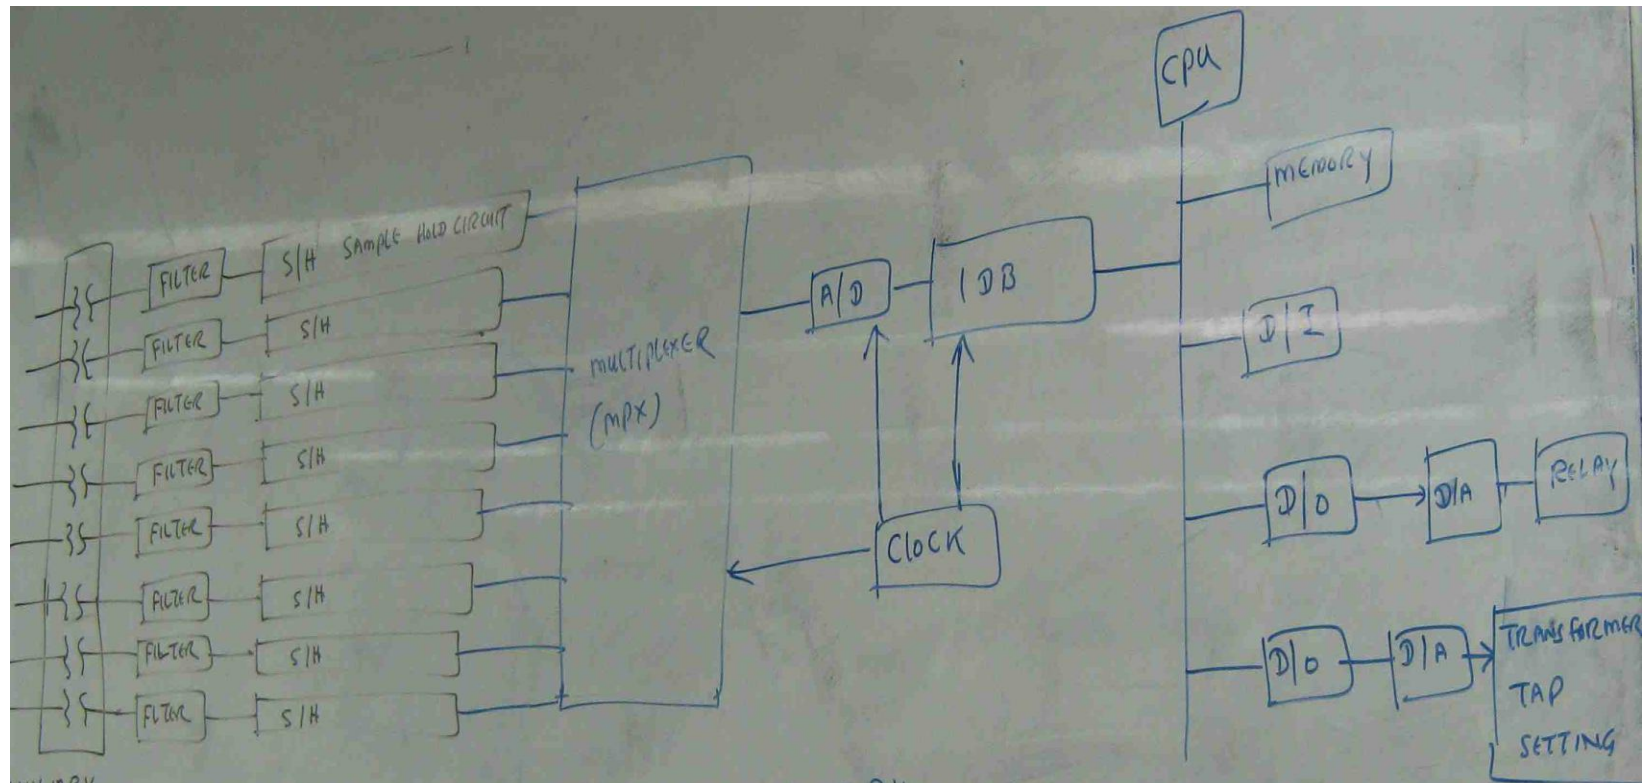 CPU
MEMORY
FILTER
S/H SAMPLE HOLD CIRCUIT
FILTER
S/H
FILTER
S/H
FILTER
S/H
FILTER
S/H
FILTER
S/H
FILTER
S/H
FILTER
S/H
MULTIPLEXER
(MPX)
A/D
IDB
CLOCK
D/I
D/O
D/A
RELAY
D/O
D/A
TRANSFORMER
TAP
SETTING